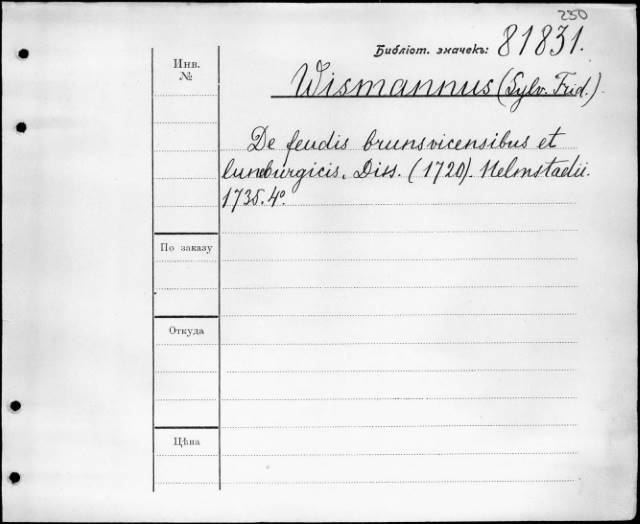 250
Библіот. значекъ: 81831.
Инв. №
Wismannus (Sylv. Frid.).
De feudis brunsvicensibus et
luneburgicis. Diss. (1720). Helmstadii.
1735. 4°.
По заказу
Откуда
Цѣна